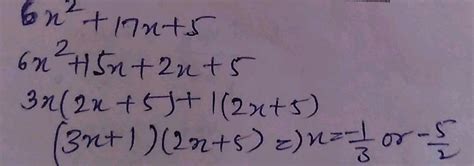 6x²+17x+5
6x²+15x+2x+5
3x(2x+5)+1(2x+5)
(3x+1)(2x+5) =) x=-1/3 or -5/2